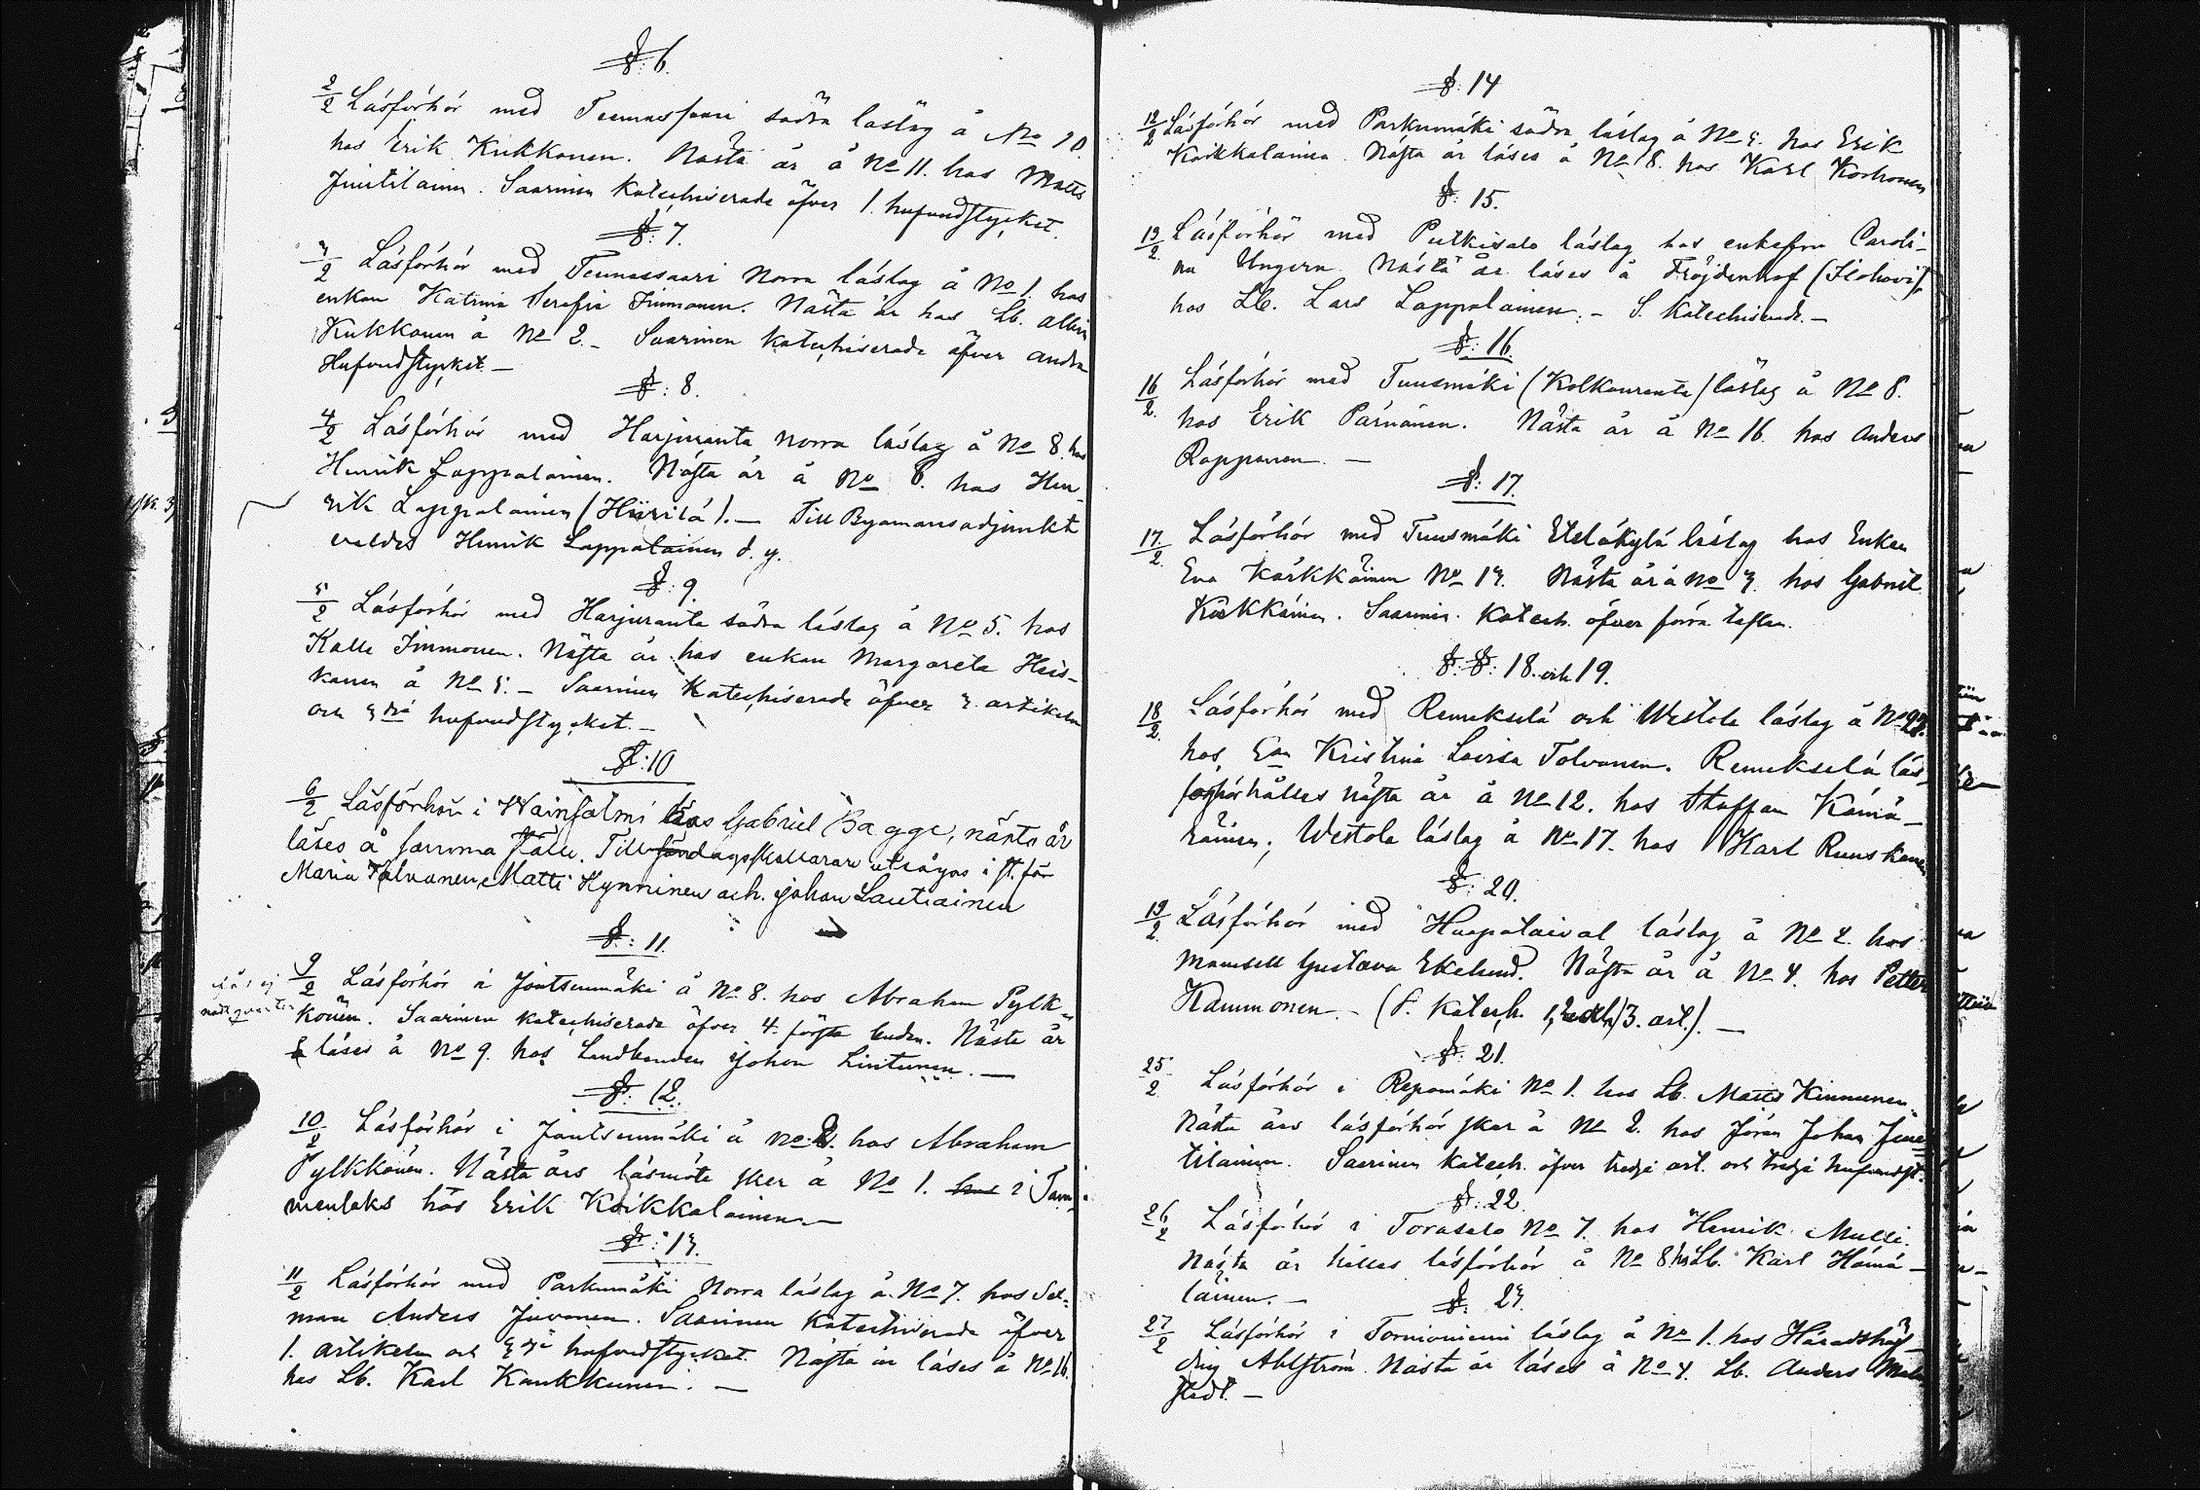 § 6.
2/2 Läsförhör med Teemassaari södra läslag å No 10.
hos Erik Kukkonen. Nästa år å No 11. hos Matts
Juutilainen. Saarinen katechiserade öfver 1. hufvudstycket.
§: 7.
3/2 Läsförhör med Teemassaari Norra läslag å No 1. hos
enkan Katrina Serafia Immonen. Nästa år hos Lb. Albin
Kukkonen å No 2. – Saarinen katechiserade öfver andra
Hufvudstycket. –
§: 8.
4/2 Läsförhör med Harjuranta norra läslag å No 8. hos
Henrik Lappalainen. Nästa år å No 6. hos Hen-
rik Lappalainen (Hiirilä). – Till Byamansadjunkt
valdes Henrik Lappalainen d. y.
§: 9.
5/2 Läsförhör med Harjuranta södra läslag å No 5. hos
Kalle Immonen. Nästa år hos enkan Margareta Heis-
kanen å No 3. – Saarinen Katechiserade öfver 3. artikeln
och 3dje hufvudstycket. –
§:10
6/2 Läsförhör i Wainsalmi hos Gabriel Bagge, nästa år
läses å samma ställe. Till utsågos i st. för
Maria Tolvanen, Matti Hynninen och Johan Lautiainen
§: 11.
9/2 Läsförhör i Joutsenmäki å No 8. hos Abraham Pylk-
könen. Saarinen katechiserade öfver 4. första buden. Nästa år
läses å No 9. hos Landbonden Johan Lintunen. –
§: 12.
10/2 Läsförhör i Joutsenmäki å No 2. hos Abraham
Pylkkönen. Nästa års läsmöte sker å No 1. hos i Tam-
menlaks hos Erik Koikkalainen. –
§: 13.
11/2 Läsförhör med Parkumäki Norra läslag å No 7. hos Sex-
man Anders Juvonen. Saarinen Katechiserade öfver
1. artikeln och 3dje hufvudstycket. Nästa år läses å No 16.
hos Lb. Karl Kaukkunen. –
§: 14
12/2 Läsförhör med Parkumäki södra läslag å No 3. hos Erik
Koikkalainen. Nästa år läses å No 8. hos Karl Korhonen
§: 15.
13/2 Läsförhör med Putkisalo läslag hos enkefru Caroli-
na Ungern. Nästa år läses å Fröjdenhof (Ilohovi)
hos Lb. Lars Lappalainen. – S. Katechiserade. –
§: 16.
16/2. Läsförhör med Tuusmäki (Kolkonranta) läslag å No 8.
hos Erik Pärnänen. Nästa år å No 16. hos Anders
Rapponen. –
§: 17.
17/2. Läsförhör med Tuusmäki Eteläkylä läslag hos Enkan
Eva Kärkkäinen No 13. Nästa år å No 3. hos Gabriel
Kärkkäinen. Saarinen. Katech. öfver förra taflan.
§.§: 18. och 19.
18/2. Läsförhör med Remekselä och Westola läslag å No 23.
hos Kristina Lovisa Tolvanen. Remekselä läs-
förhör hålles nästa år å No 12. hos Staffan Kämä-
räinen; Westola läslag å No 17. hos Karl Ruuskanen
§: 20.
19/2. Läsförhör med Haapataival läslag å No 2. hos
Mamsell Gustava Ekelund. Nästa år å No 4. hos Petter
Kammonen. – (S. Katech. 1, 2 och 3. art.). –
§: 21.
25/2 Läsförhör i Repomäki No 1. hos Lb. Matts Kinnunen.
Nästa års läsförhör sker å No 2. hos Johan Juu-
tilainen. Saarinen Katech. öfver tredje art. och tredje hufvudst.
§: 22.
26/2 Läsförhör i Torasalo No 7. hos Henrik Mulli.
Nästa år hålles läsförhör å No 8 hos Lb. Karl Hämä-
läinen. –
§: 23.
27/2 Läsförhör i Tornioniemi läslag å No 1. hos Häradshöf-
ding Ahlström. Nästa år läses å No 4. Lb. Anders Malm-
stedt. –